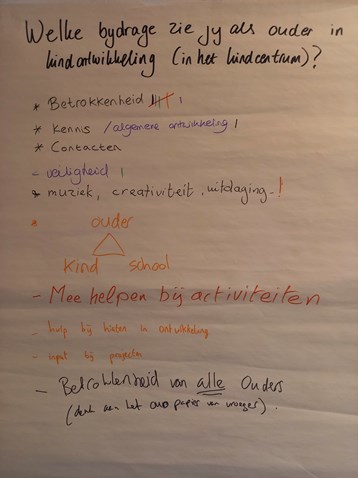 Welke bydrage zie jy als ouder in
kindontwikkeling (in het kindcentrum)?
* Betrokkenheid
* Kennis / algemene ontwikkeling
* Contacten
- veiligheid
* muziek, creativiteit, uitdaging
* ouder
kind school
- Mee helpen bij activiteiten
- hulp bij in ontwikkeling
- input bij projecten
- Betrokkenheid van alle Ouders
(denk aan het oud papier van vroeger).